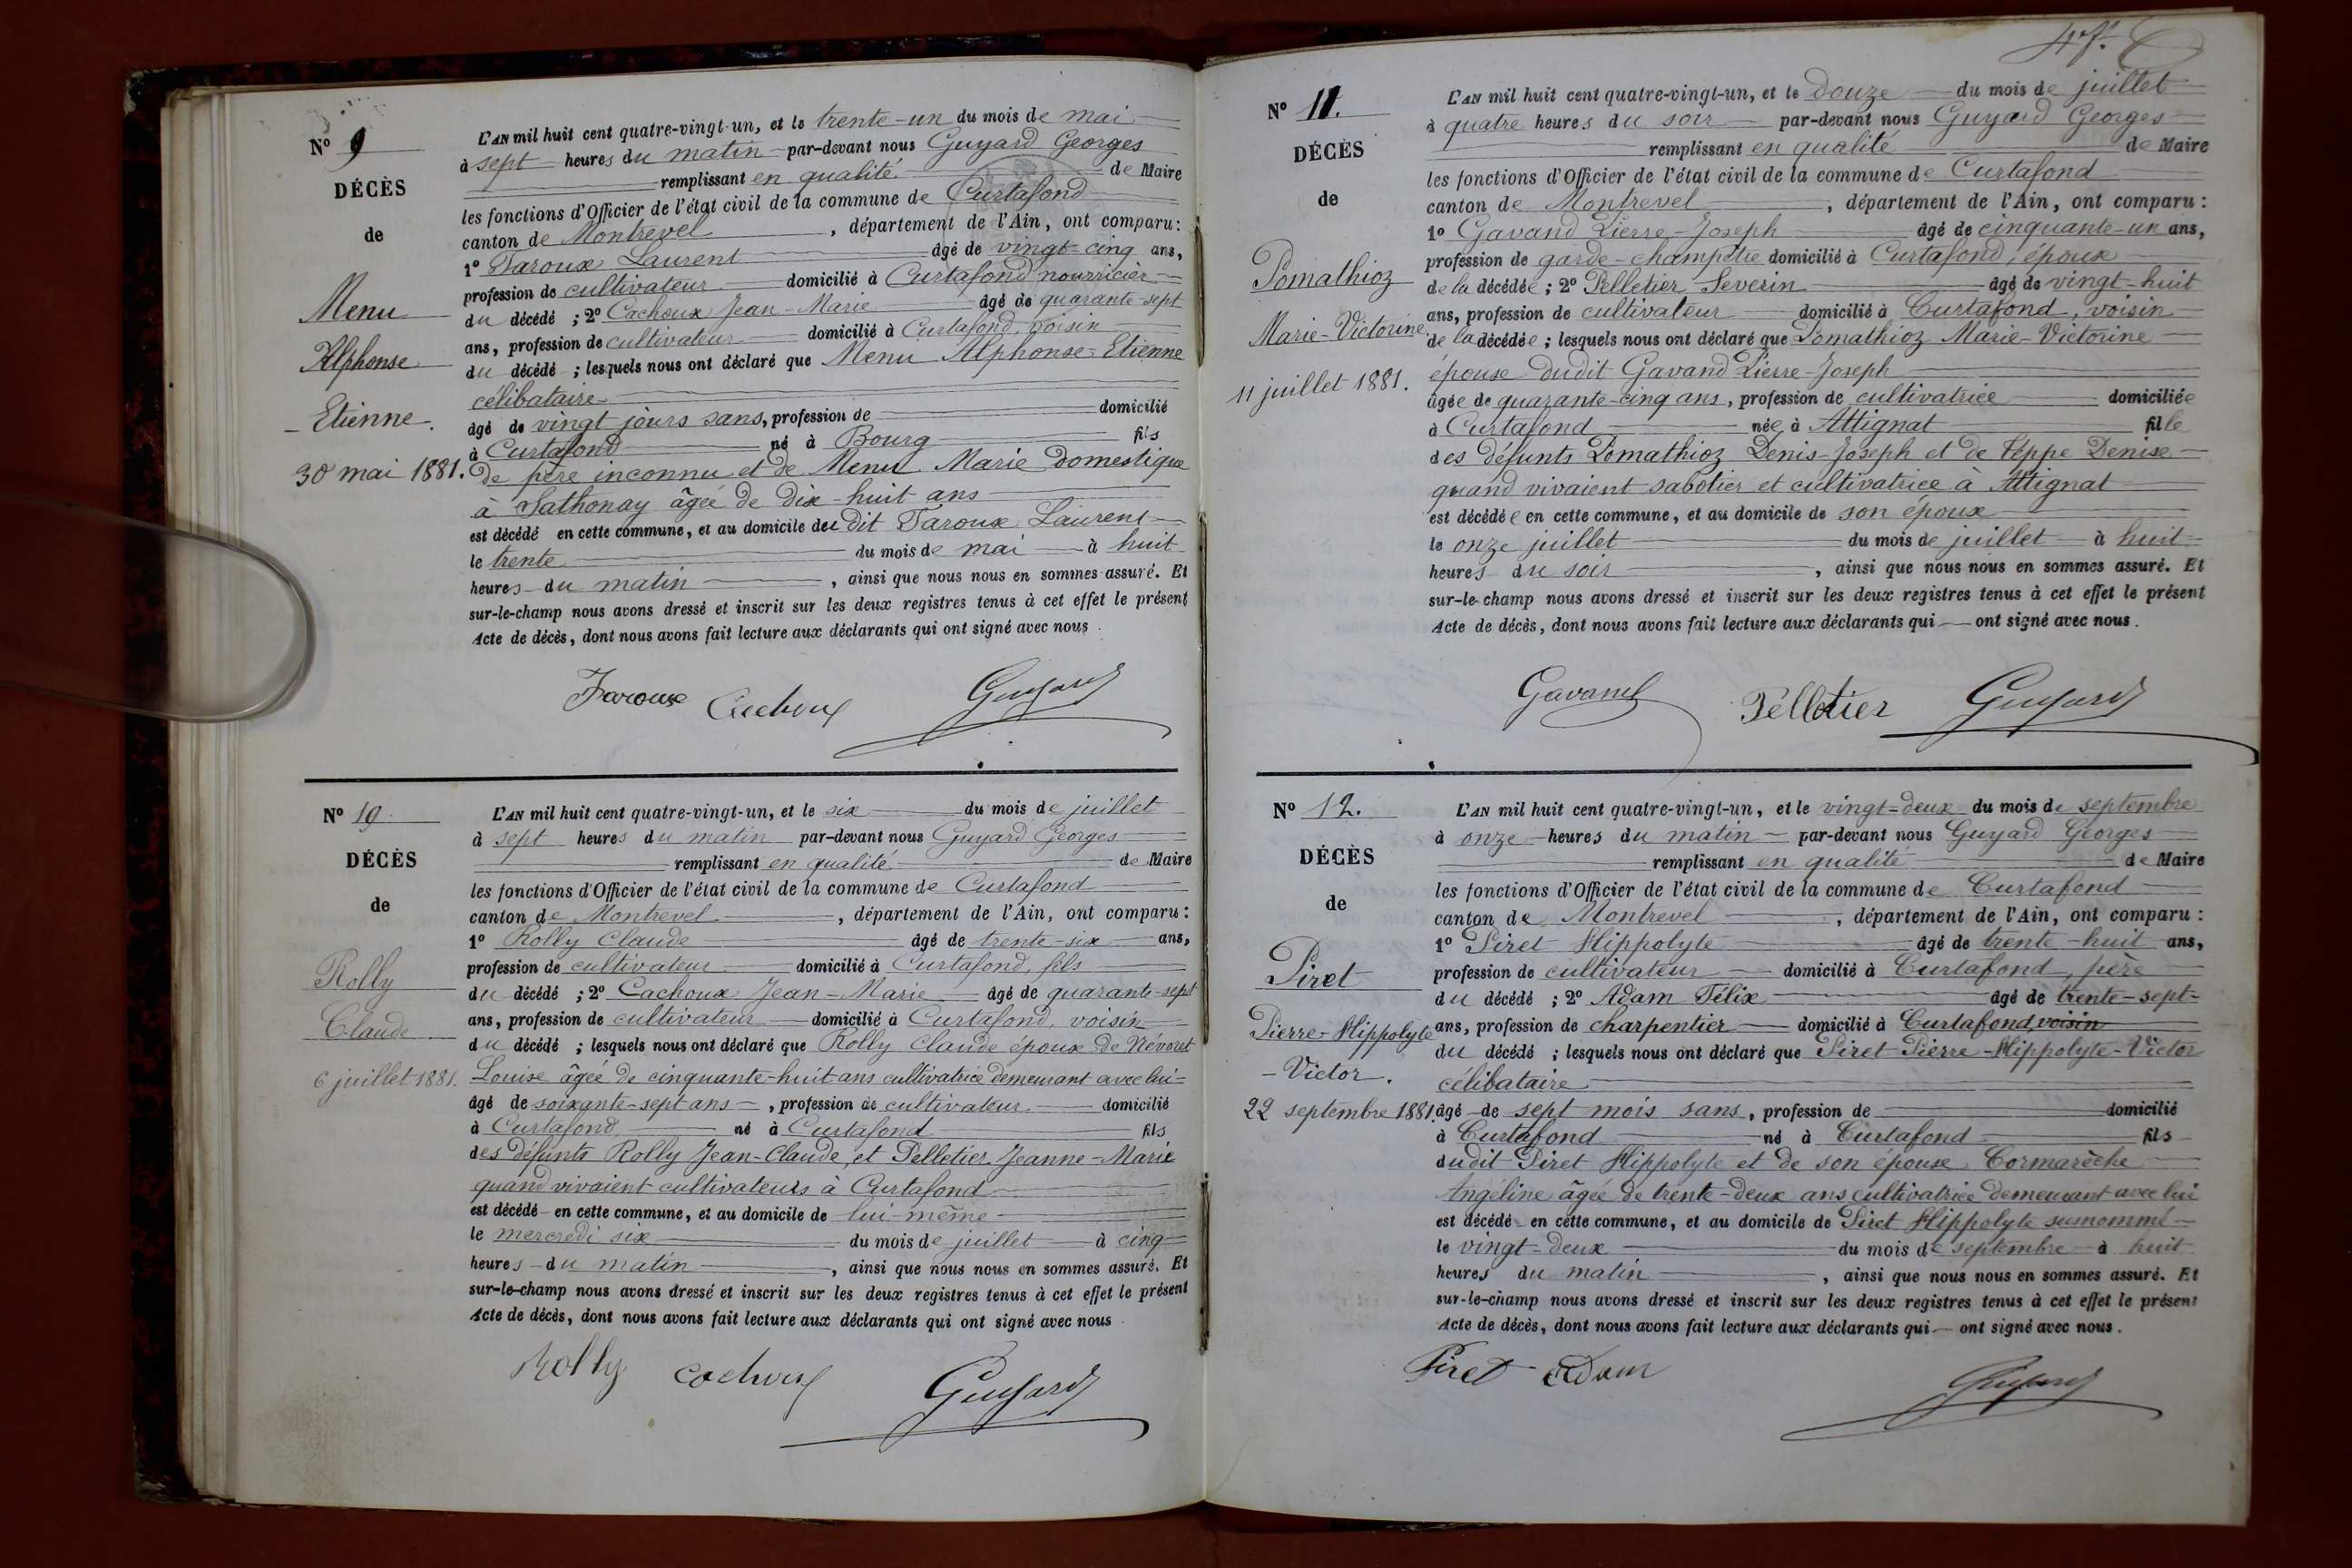 N° 9
DÉCÈS
de
Menu
Alphonse
- Etienne -.
30 mai 1881.
L'AN mil huit cent quatre-vingt-un, et le trente-un du mois de mai
à sept heures du matin par-devant nous Guyard Georges
remplissant en qualité de Maire
les fonctions d'Officier de l'état civil de la commune de Curtafond
canton de Montrevel, département de l'Ain, ont comparu:
1° Faroux Laurent âgé de vingt-cinq ans,
profession de cultivateur domicilié à Curtafond nourricier
du décédé ; 2° Cachoux Jean-Marie âgé de quarante-sept
ans, profession de cultivateur domicilié à Curtafond, voisin
du décédé ; lesquels nous ont déclaré que Menu Alphonse-Etienne
célibataire
âgé de vingt jours sans, profession de domicilié
à Curtafond né à Bourg fils
de père inconnu et de Menu Marie domestique
à Sathonay âgée de dix-huit ans
est décédé en cette commune, et au domicile du dit Faroux Laurent
le trente du mois de mai à huit
heures du matin, ainsi que nous nous en sommes assuré. Et
sur-le-champ nous avons dressé et inscrit sur les deux registres tenus à cet effet le présent
Acte de décès, dont nous avons fait lecture aux déclarants qui ont signé avec nous.
Faroux Cachoux Guyard
N° 10
DÉCÈS
de
Rolly
Claude
6 juillet 1881.
L'AN mil huit cent quatre-vingt-un, et le six du mois de juillet
à sept heures du matin par-devant nous Guyard Georges
remplissant en qualité de Maire
les fonctions d'Officier de l'état civil de la commune de Curtafond
canton de Montrevel, département de l'Ain, ont comparu:
1° Rolly Claude âgé de trente-six ans,
profession de cultivateur domicilié à Curtafond, fils
du décédé ; 2° Cachoux Jean-Marie âgé de quarante-sept
ans, profession de cultivateur domicilié à Curtafond, voisin
du décédé ; lesquels nous ont déclaré que Rolly Claude époux de Névoret
Louise âgée de cinquante-huit ans cultivatrice demeurant avec lui=
âgé de soixante-sept ans, profession de cultivateur domicilié
à Curtafond né à Curtafond fils
des défunts Rolly Jean-Claude, et Pelletier Jeanne-Marie
quand vivaient cultivateurs à Curtafond
est décédé en cette commune, et au domicile de lui-même
le mercredi six du mois de juillet à cinq
heures du matin, ainsi que nous nous en sommes assuré. Et
sur-le-champ nous avons dressé et inscrit sur les deux registres tenus à cet effet le présent
Acte de décès, dont nous avons fait lecture aux déclarants qui ont signé avec nous.
Rolly Cachoux Guyard
N° 11.
DÉCÈS
de
Pomathioz
Marie-Victorine
11 juillet 1881.
L'AN mil huit cent quatre-vingt-un, et le douze du mois de juillet
à quatre heures du soir par-devant nous Guyard Georges
remplissant en qualité de Maire
les fonctions d'Officier de l'état civil de la commune de Curtafond
canton de Montrevel, département de l'Ain, ont comparu :
1° Gavand Pierre-Joseph âgé de cinquante-un ans,
profession de garde-champêtre domicilié à Curtafond, époux
de la décédée ; 2° Pelletier Severin âgé de vingt-huit
ans, profession de cultivateur domicilié à Curtafond, voisin
de la décédée ; lesquels nous ont déclaré que Pomathioz Marie-Victorine
épouse dudit Gavand Pierre-Joseph
âgée de quarante-cinq ans, profession de cultivatrice domiciliée
à Curtafond née à Attignat fille
des défunts Pomathioz Denis-Joseph et de Péppe Denise
quand vivaient sabotier et cultivatrice à Attignat
est décédée en cette commune, et au domicile de son époux
le onze juillet du mois de juillet à huit
heures du soir, ainsi que nous nous en sommes assuré. Et
sur-le-champ nous avons dressé et inscrit sur les deux registres tenus à cet effet le présent
Acte de décès, dont nous avons fait lecture aux déclarants qui ont signé avec nous.
Gavand Pelletier Guyard
N° 12.
DÉCÈS
de
Piret
Pierre-Hippolyte
- Victor.
22 septembre 1881.
L'AN mil huit cent quatre-vingt-un, et le vingt-deux du mois de septembre
à onze heures du matin par-devant nous Guyard Georges
remplissant en qualité de Maire
les fonctions d'Officier de l'état civil de la commune de Curtafond
canton de Montrevel, département de l'Ain, ont comparu :
1° Piret Hippolyte âgé de trente-huit ans,
profession de cultivateur domicilié à Curtafond, père
du décédé ; 2° Adam Félix âgé de trente-sept
ans, profession de charpentier domicilié à Curtafond, voisin
du décédé ; lesquels nous ont déclaré que Piret Pierre-Hippolyte-Victor
célibataire
âgé de sept mois sans, profession de domicilié
à Curtafond né à Curtafond fils
dudit Piret Hippolyte et de son épouse Cormarèche
Angéline âgée de trente-deux ans cultivatrice demeurant avec lui
est décédé en cette commune, et au domicile de Piret Hippolyte susnommé
le vingt-deux du mois de septembre à huit
heures du matin, ainsi que nous nous en sommes assuré. Et
sur-le-champ nous avons dressé et inscrit sur les deux registres tenus à cet effet le présent
Acte de décès, dont nous avons fait lecture aux déclarants qui ont signé avec nous.
Piret Adam Guyard